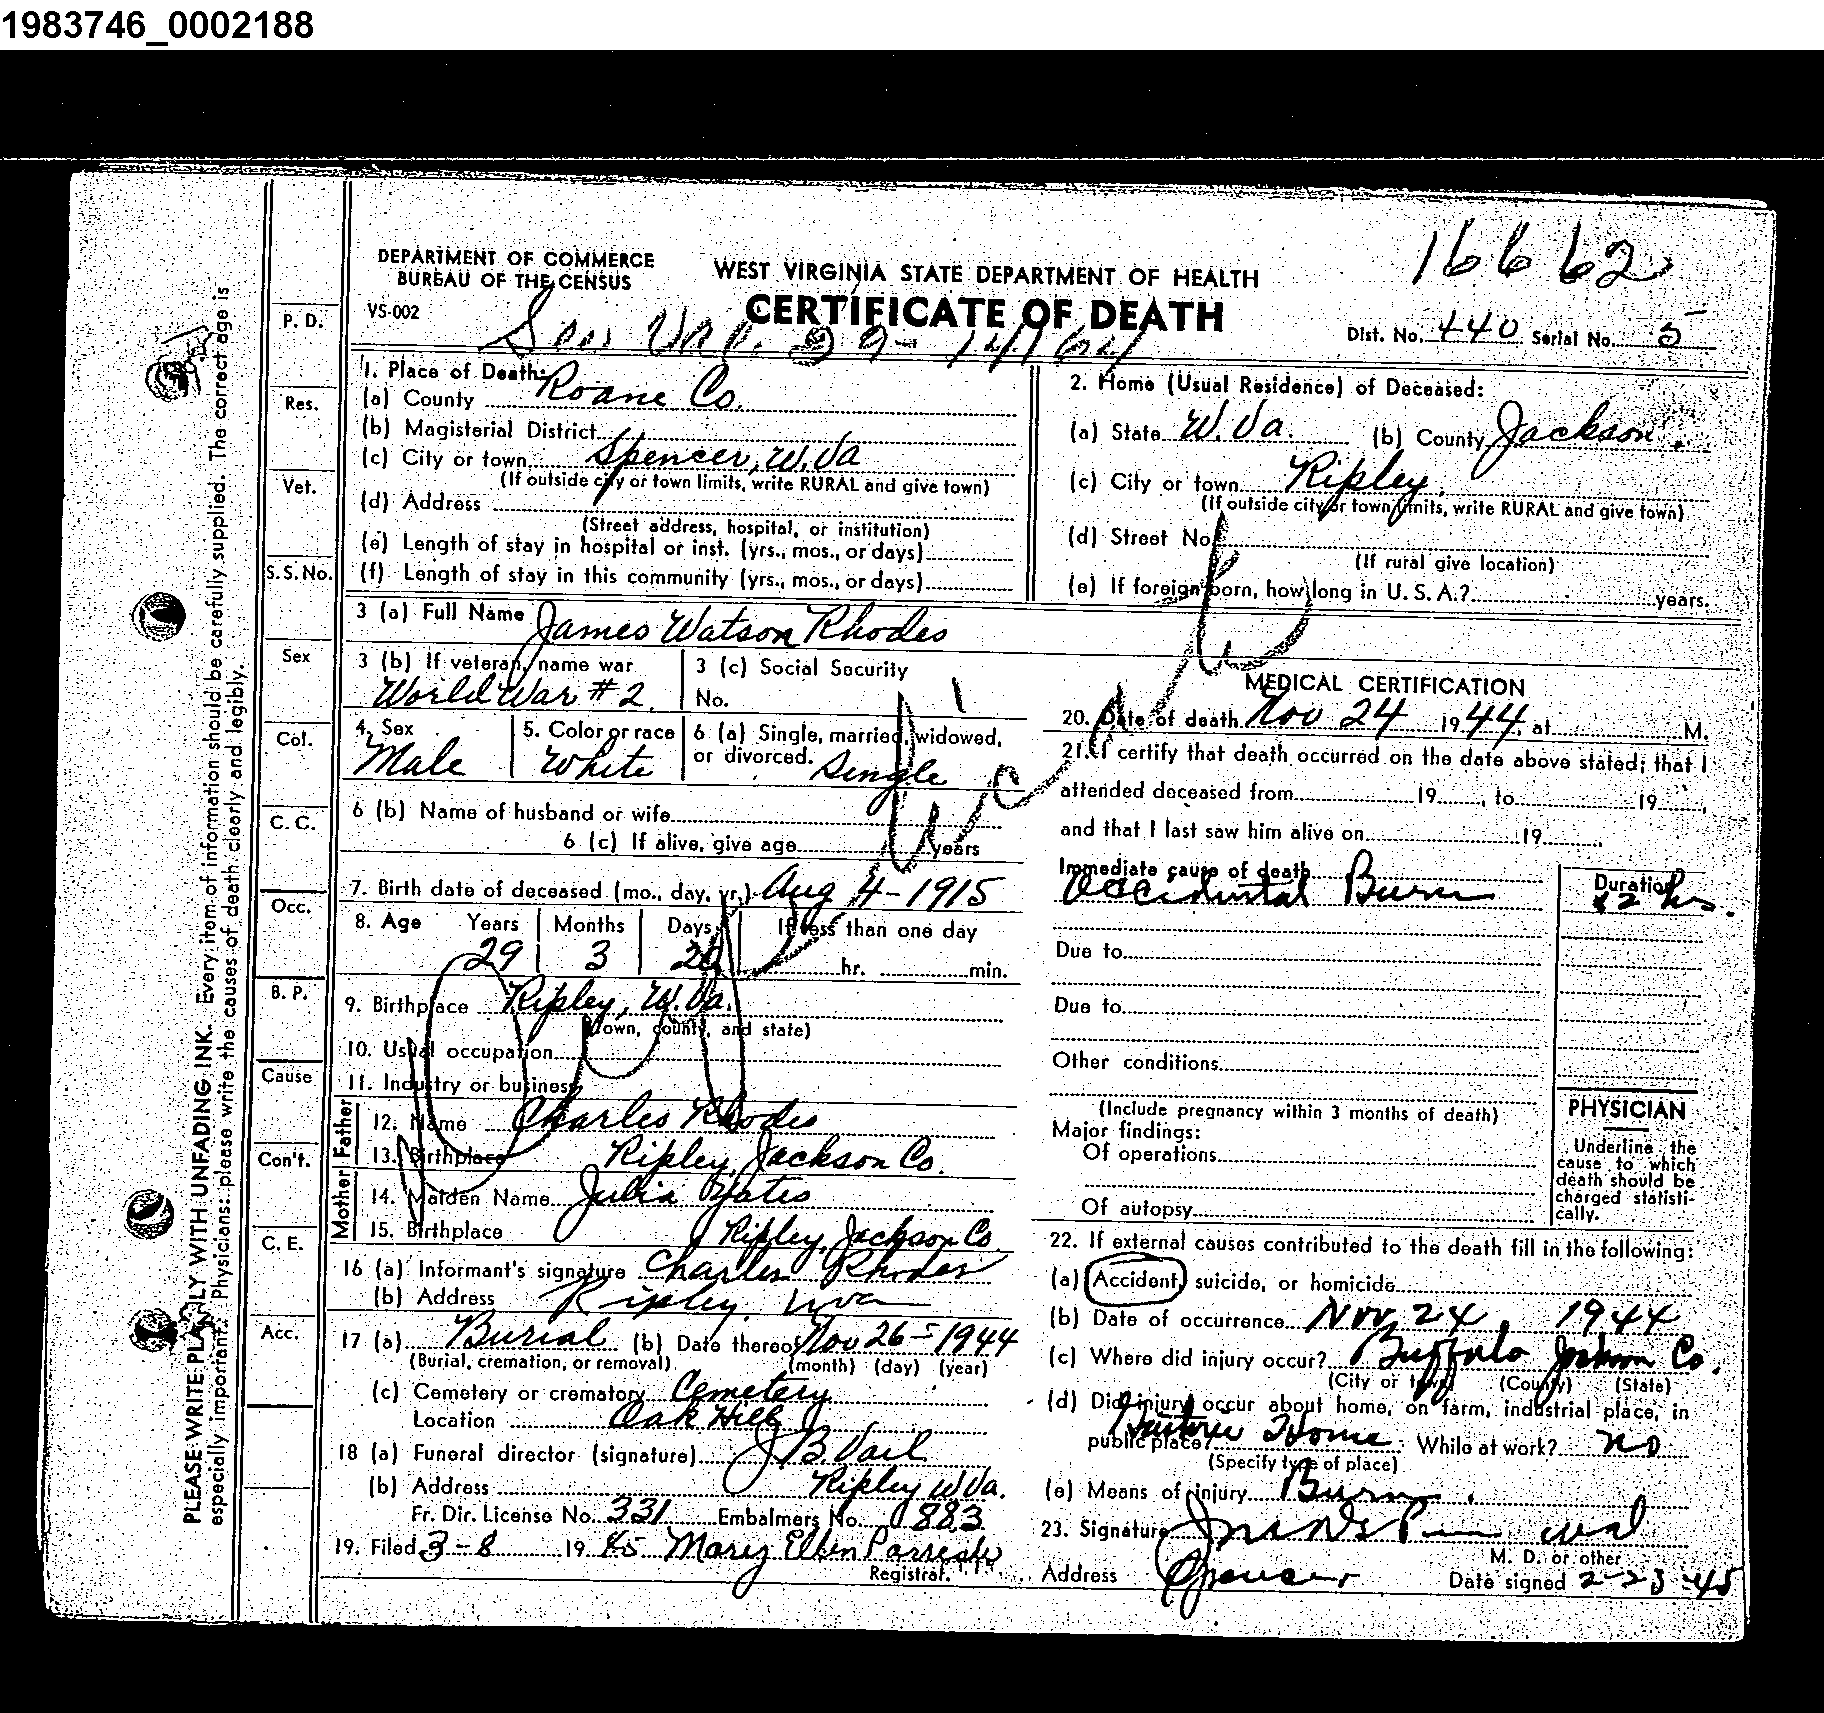 1983746_0002188
16662
DEPARTMENT OF COMMERCE
BUREAU OF THE CENSUS
WEST VIRGINIA STATE DEPARTMENT OF HEALTH
CERTIFICATE OF DEATH
VS-002
Dist. No. 440 Serial No. 5
1. Place of Death:
(a) County Roane Co.
(b) Magisterial District
(c) City or town Spencer, W. Va
(If outside city or town limits, write RURAL and give town)
(d) Address
(Street address, hospital, or institution)
(e) Length of stay in hospital or inst. (yrs., mos., or days)
(f) Length of stay in this community (yrs., mos., or days)
2. Home (Usual Residence) of Deceased:
(a) State W. Va. (b) County Jackson.
(c) City or town Ripley,
(If outside city or town limits, write RURAL and give town)
(d) Street No.
(If rural give location)
(e) If foreign born, how long in U. S. A.? years.
3 (a) Full Name James Watson Rhodes
3 (b) If veteran, name war World War # 2.
3 (c) Social Security No.
4. Sex Male
5. Color or race White
6 (a) Single, married, widowed, or divorced. Single
6 (b) Name of husband or wife
6 (c) If alive, give age years
7. Birth date of deceased (mo., day, yr.) Aug 4-1915
8. Age Years Months Days If less than one day
29 3 20 hr. min.
9. Birthplace Ripley, W. Va.
(Town, county, and state)
10. Usual occupation
11. Industry or business
Father
12. Name Charles Rhodes
13. Birthplace Ripley, Jackson Co.
Mother
14. Maiden Name Julia Yates
15. Birthplace Ripley, Jackson Co
16 (a) Informant's signature Charles Rhodes
(b) Address Ripley, Wva
17 (a) Burial (b) Date thereof Nov 26-1944
(Burial, cremation, or removal) (month) (day) (year)
(c) Cemetery or crematory Cemetery
Location Oak Hill
18 (a) Funeral director (signature) J B. Vail
(b) Address Ripley W Va.
Fr. Dir. License No. 331 Embalmers No. 883
19. Filed 3-8 19 45 Mary Ellen Parrish
Registrar.
MEDICAL CERTIFICATION
20. Date of death Nov 24 1944, at M.
21. I certify that death occurred on the date above stated; that I
attended deceased from 19 , to 19 ,
and that I last saw him alive on 19 .
Immediate cause of death Duration
Accidental Burn hrs.
Due to
Due to
Other conditions
(Include pregnancy within 3 months of death)
Major findings:
Of operations
Of autopsy
PHYSICIAN
Underline the
cause to which
death should be
charged statisti-
cally.
22. If external causes contributed to the death fill in the following:
(a) Accident, suicide, or homicide
(b) Date of occurrence Nov 24, 1944
(c) Where did injury occur? Buffalo Jackson Co.
(City or town) (County) (State)
(d) Did injury occur about home, on farm, industrial place, in
public place? Home While at work? no
(Specify type of place)
(e) Means of injury Burn.
23. Signature
M. D. or other
Address Spencer Date signed 2-23-45
P. D.
Res.
Vet.
S. S. No.
Sex
Col.
C. C.
Occ.
B. P.
Cause
Con't.
C. E.
Acc.
PLEASE WRITE PLAINLY WITH UNFADING INK. Every item of information should be carefully supplied. The correct age is
especially important. Physicians: please write the causes of death clearly and legibly.